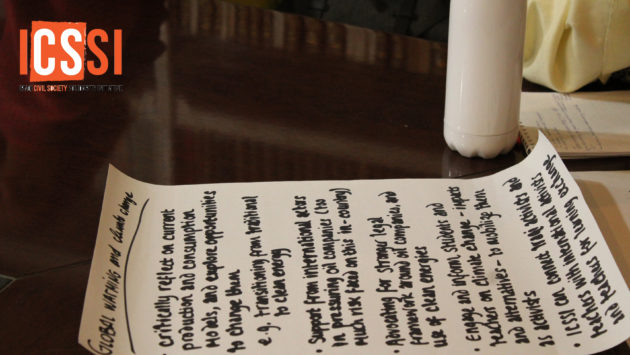 ICSSI
IRAQI CIVIL SOCIETY SOLIDARITY INITIATIVE
GLOBAL WARMING and climate change
• Critically reflect on current
production and consumption
models, and explore opportunities
to change them
e.g. transitioning from traditional
to clean energy
• Support from international actors
in pressuring oil companies (too
much risk faced on this in-country)
• Advocating for stronger legal
framework around oil companies and
use of clean energies
• Engage and inform students and
teachers on climate change - impacts
and alternatives - to mobilize them
as activists
• ICSSI can connect Iraqi activists and
teachers with international activists
and teachers for learning exchange